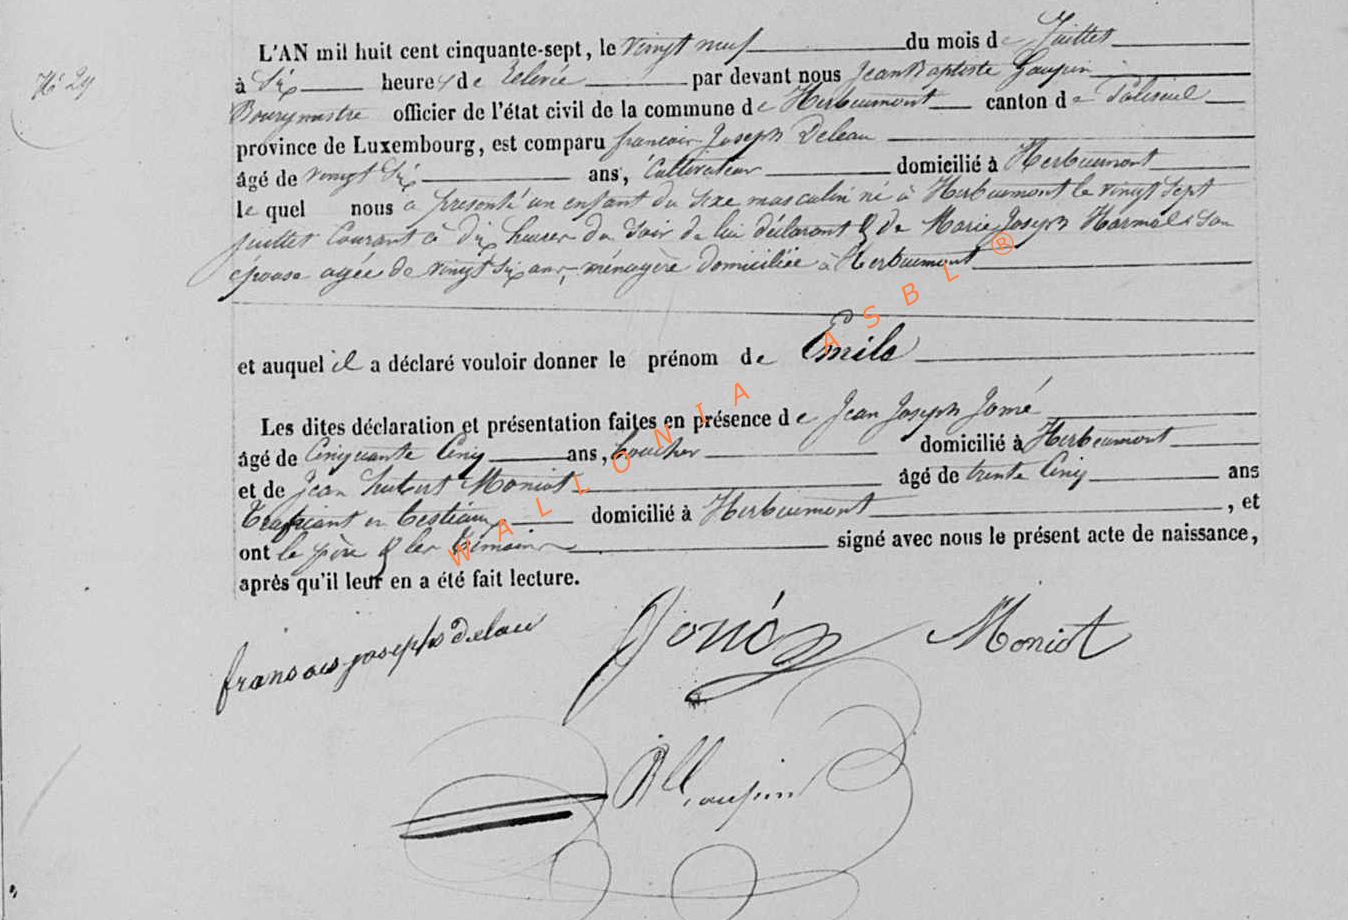 N° 29
L'AN mil huit cent cinquante-sept, le vingt neuf du mois de Juillet
à Six heures de relevée par devant nous Jean Baptiste Gaupin
Bourgmestre officier de l'état civil de la commune de Herbeumont canton de Paliseul
province de Luxembourg, est comparu francois Joseph Deleau
âgé de vingt Six ans, Cultivateur domicilié à Herbeumont
le quel nous a présenté un enfant du sexe masculin né à Herbeumont le vingt sept
juillet Courant à dix heures du Soir de lui déclarant & de Marie Joseph Harmel son
épouse agée de vingt six ans, ménagère domiciliée à Herbeumont
et auquel il a déclaré vouloir donner le prénom de Emile
Les dites déclaration et présentation faites en présence de Jean Joseph
âgé de Cinquante Cinq ans, boucher domicilié à Herbeumont
et de Jean hubert Moniot âgé de trente Cinq ans
Trafiquant en bestiaux domicilié à Herbeumont, et
ont le père & les témoins signé avec nous le présent acte de naissance,
après qu'il leur en a été fait lecture.
fransois joseph delau Moniot
WALLONIA ASBL ®